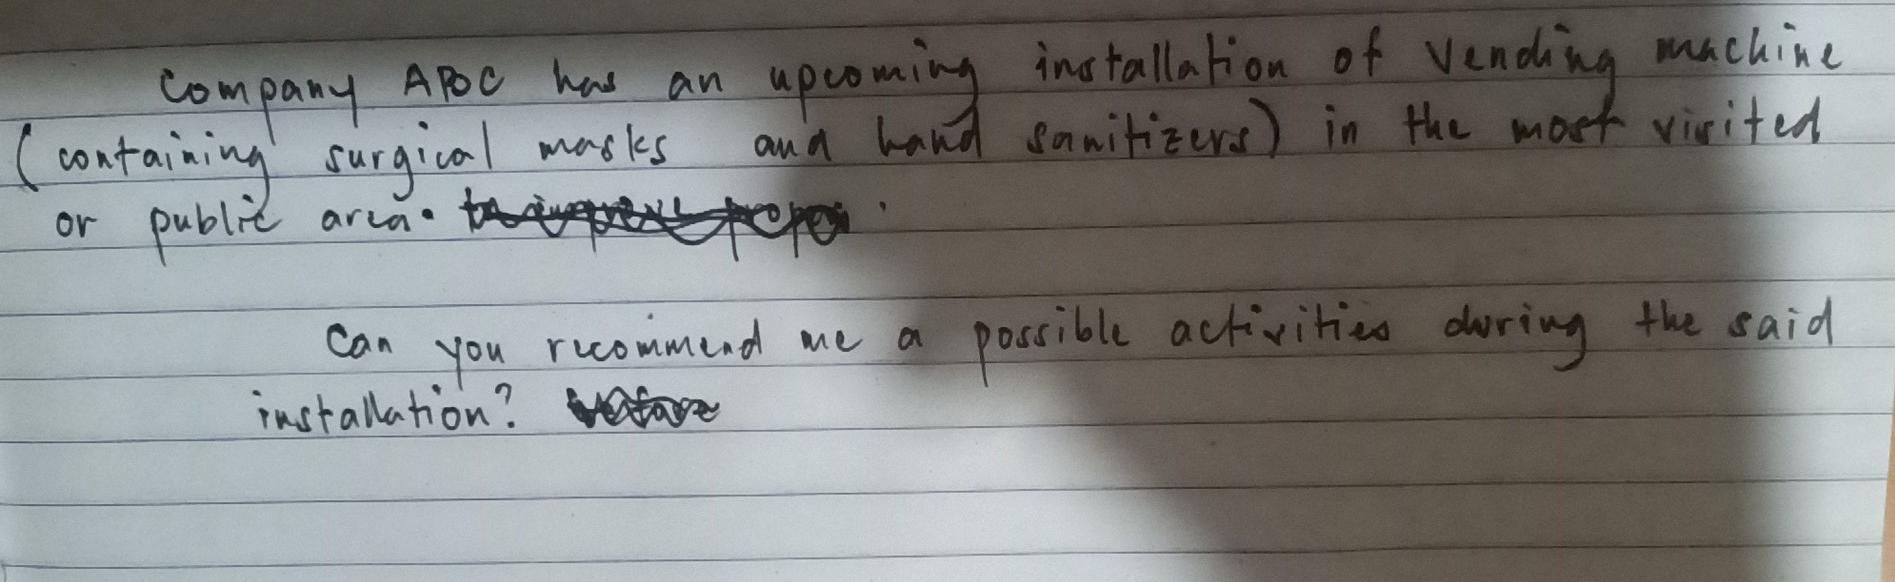 Company APOC has an upcoming installation of vending machine
(containing surgical masks and hand sanitizers) in the most visited
or public area.
Can you recommend me a possible activities during the said
installation?